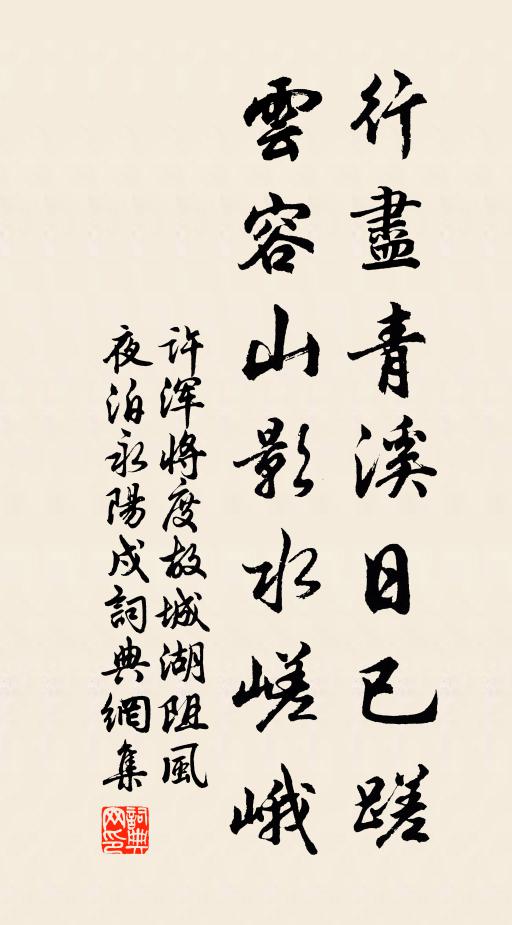 行盡青溪日已蹉
雲容山影水嵯峨
許浑將度故城湖阻風
夜泊永陽戍詞典網集
詞典